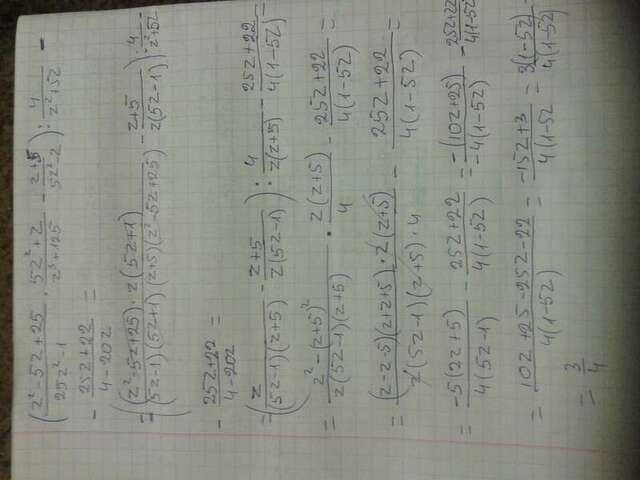 ( (z² - 5z + 25)/(25z² - 1) · (5z² + z)/(z³ + 125) - (z + 5)/(5z² - z) ) : 4/(z² + 5z) -
- (25z + 22)/(4 - 20z) =
= ( ((z² - 5z + 25) · z(5z + 1))/((5z - 1)(5z + 1)(z + 5)(z² - 5z + 25) - (z + 5)/(z(5z - 1)) ) : 4/(z² + 5z)
- (25z + 22)/(4 - 20z) =
= ( z/((5z - 1)(z + 5) - (z + 5)/(z(5z - 1)) ) : 4/(z(z + 5) - (25z + 22)/(4(1 - 5z) =
= (z² - (z + 5)²)/(z(5z - 1)(z + 5) · (z(z + 5)/4 - (25z + 22)/(4(1 - 5z) =
= ((z - z - 5)(z + z + 5) · z(z + 5)/(z(5z - 1)(z + 5) · 4 - (25z + 22)/(4(1 - 5z) =
= (-5(2z + 5)/(4(5z - 1) - (25z + 22)/(4(1 - 5z) = (-(10z + 25)/(-4(1 - 5z) - (25z + 22)/(4(1 - 5z)
= (10z + 25 - 25z - 22)/(4(1 - 5z) = (-15z + 3)/(4(1 - 5z = (3(1 - 5z)/(4(1 - 5z) =
= 3/4